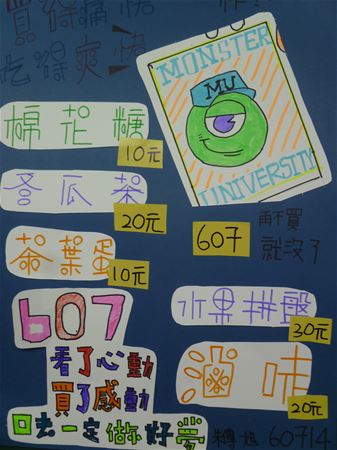 買得痛快
吃得爽快
MONSTER
MU
UNIVERSITY
棉花糖
10元
冬瓜茶
20元
茶葉蛋
10元
607
再不買
就沒了
水果拼盤
30元
20元
607
看了心動
買了感動
回去一定做好夢
60714